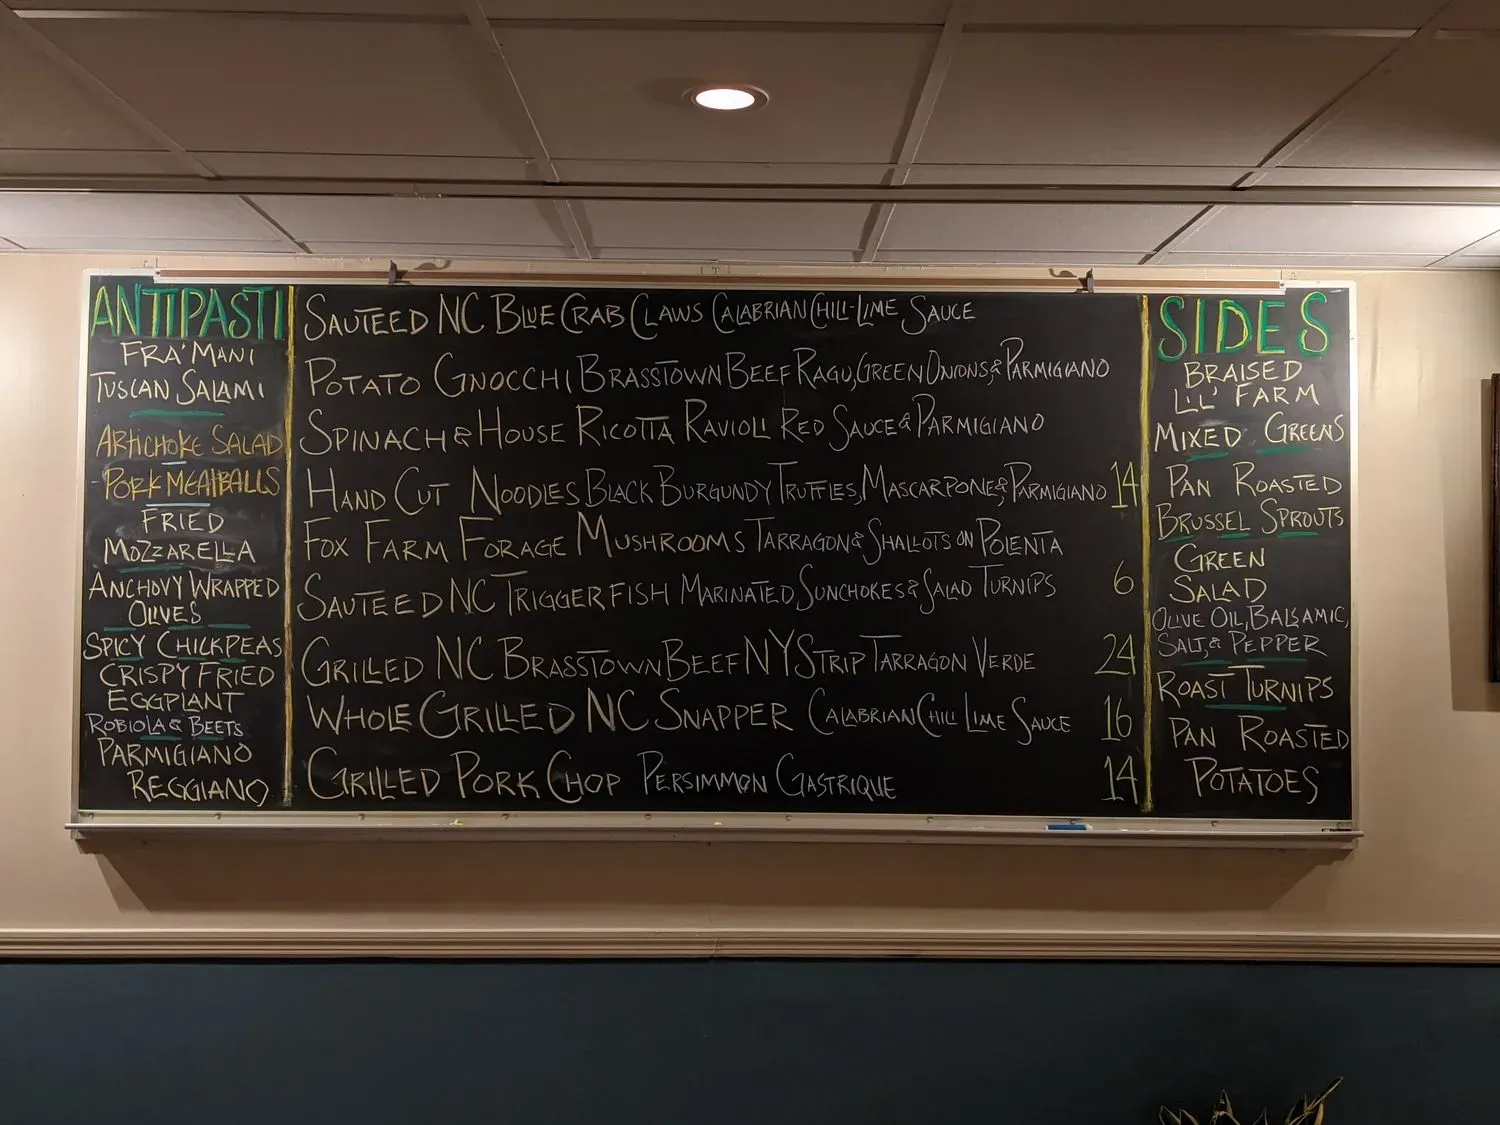 ANTIPASTI
FRA'MANI
TUSCAN SALAMI
ARTICHOKE SALAD
PORK MEATBALLS
FRIED
MOZZARELLA
ANCHOVY WRAPPED
OLIVES
SPICY CHICKPEAS
CRISPY FRIED
EGGPLANT
ROBIOLA & BEETS
PARMIGIANO
REGGIANO
SAUTEED NC BLUE CRAB CLAWS CALABRIAN CHILI-LIME SAUCE
POTATO GNOCCHI BRASSTOWN BEEF RAGU, GREEN ONIONS, & PARMIGIANO
SPINACH & HOUSE RICOTTA RAVIOLI RED SAUCE & PARMIGIANO
HAND CUT NOODLES BLACK BURGUNDY TRUFFLES, MASCARPONE & PARMIGIANO 14
FOX FARM FORAGE MUSHROOMS TARRAGON & SHALLOTS ON POLENTA
SAUTEED NC TRIGGERFISH MARINATED SUNCHOKES & SALAD TURNIPS 6
GRILLED NC BRASSTOWN BEEF NY STRIP TARRAGON VERDE 24
WHOLE GRILLED NC SNAPPER CALABRIAN CHILI LIME SAUCE 16
GRILLED PORK CHOP PERSIMMON GASTRIQUE 14
SIDES
BRAISED
LIL' FARM
MIXED GREENS
PAN ROASTED
BRUSSEL SPROUTS
GREEN
SALAD
OLIVE OIL, BALSAMIC,
SALT, & PEPPER
ROAST TURNIPS
PAN ROASTED
POTATOES